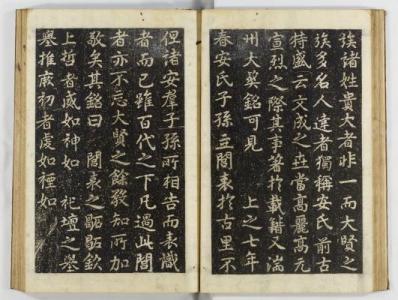 族諸姓貴大者非一而大賢之
族多名人達者獨稱安氏前古
持盛云文成之在當高麗高元
宣烈之際其事著於載籍又湍
州大葬銘可見 上之七年
春安氏子孫立閭表於古里不
但諸安羣子孫所相告而表識
者而已雖百代之下凡過此閭
者亦不忘大賢之餘發知所加
敬矣其銘曰 閭表之
上哲者咸如神如 祀壇之
墓推厥初者虔如禋如